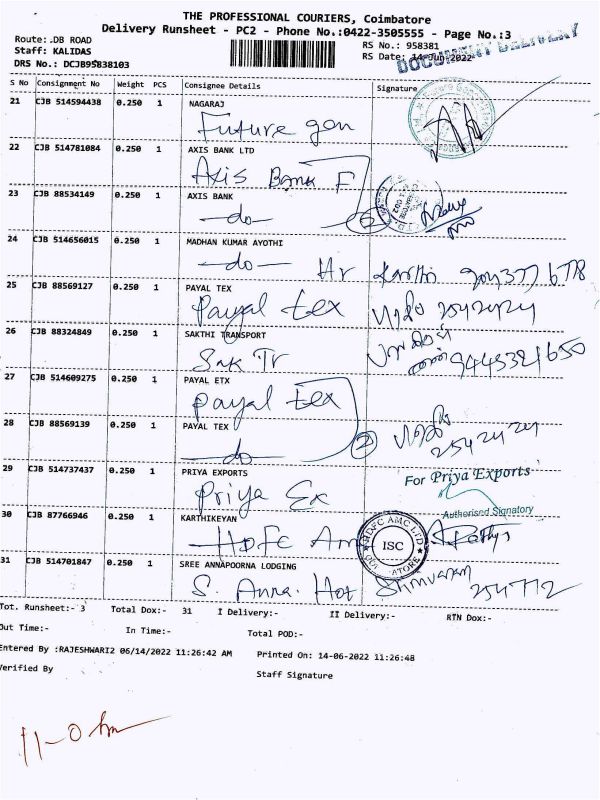 THE PROFESSIONAL COURIERS, Coimbatore
Delivery Runsheet - PC2 - Phone No.:0422-3505555 - Page No.:3
Route: .DB ROAD
RS No.: 958381
DOCUMENT DELIVERY
Staff: KALIDAS
RS Date: 14-Jun-2022
DRS No.: DCJB95838103
S No Consignment No Weight PCS Consignee Details Signature
21 CJB 514594438 0.250 1 NAGARAJ
Future gen
22 CJB 514781084 0.250 1 AXIS BANK LTD
Axis Bank F
23 CJB 88534149 0.250 1 AXIS BANK
-do- 2
24 CJB 514656015 0.250 1 MADHAN KUMAR AYOTHI
-do- Hr
25 CJB 88569127 0.250 1 PAYAL TEX
Payal tex 2542424
26 CJB 88324849 0.250 1 SAKTHI TRANSPORT
Sak Tr 9445321650
27 CJB 514609275 0.250 1 PAYAL ETX
Payal tex
28 CJB 88569139 0.250 1 PAYAL TEX
-do- 2 2542424
29 CJB 514737437 0.250 1 PRIYA EXPORTS
For Priya Exports
Priya Ex
Authorised Signatory
30 CJB 87766946 0.250 1 KARTHIKEYAN
HDFC Am
HDFC AMC LTD
ISC
31 CJB 514701847 0.250 1 SREE ANNAPOORNA LODGING
S. Anna. Hot
Tot. Runsheet:- 3 Total Dox:- 31 I Delivery:- II Delivery:- RTN Dox:-
Out Time:- In Time:- Total POD:-
Entered By :RAJESHWARI2 06/14/2022 11:26:42 AM Printed On: 14-06-2022 11:26:48
Verified By
Staff Signature